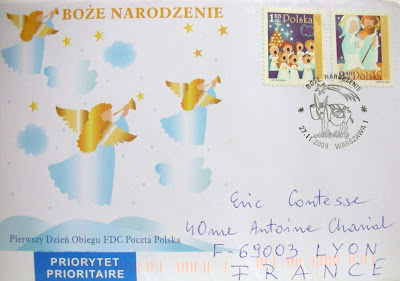 BOŻE NARODZENIE
1,55 Polska
Polska
BOŻE NARODZENIE
27.11.2009 WARSZAWA 1
Eric Contesse
40me Antoine Charial
F-69003 LYON
FRANCE
Pierwszy Dzień Obiegu FDC Poczta Polska
PRIORYTET
PRIORITAIRE